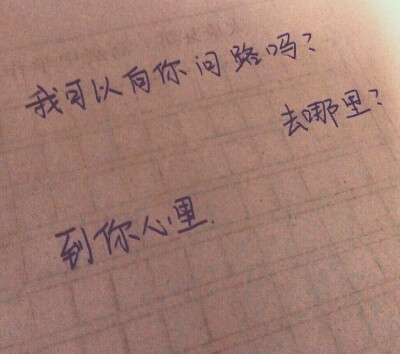 我可以向你问路吗？
去哪里？
到你心里.